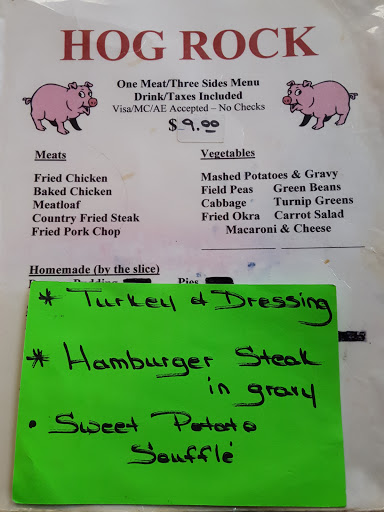 HOG ROCK
One Meat/Three Sides Menu
Drink/Taxes Included
Visa/MC/AE Accepted – No Checks
$ 9.00
Meats
Fried Chicken
Baked Chicken
Meatloaf
Country Fried Steak
Fried Pork Chop
Vegetables
Mashed Potatoes & Gravy
Field Peas Green Beans
Cabbage Turnip Greens
Fried Okra Carrot Salad
Macaroni & Cheese
Homemade (by the slice)
Pudding Pies
* Turkey & Dressing
* Hamburger Steak
in gravy
• Sweet Potato
Soufflé